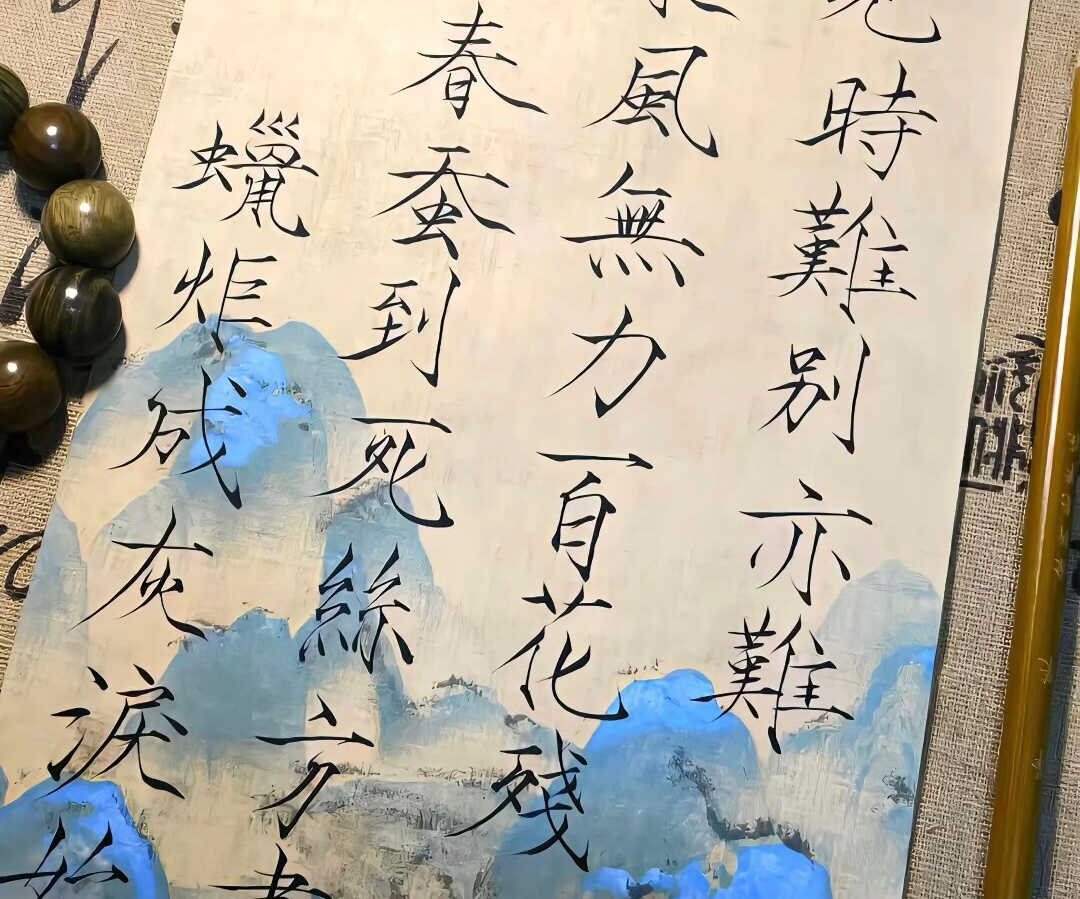 時難別亦難
風無力百花殘
春蚕到死絲方
蠟炬成灰淚